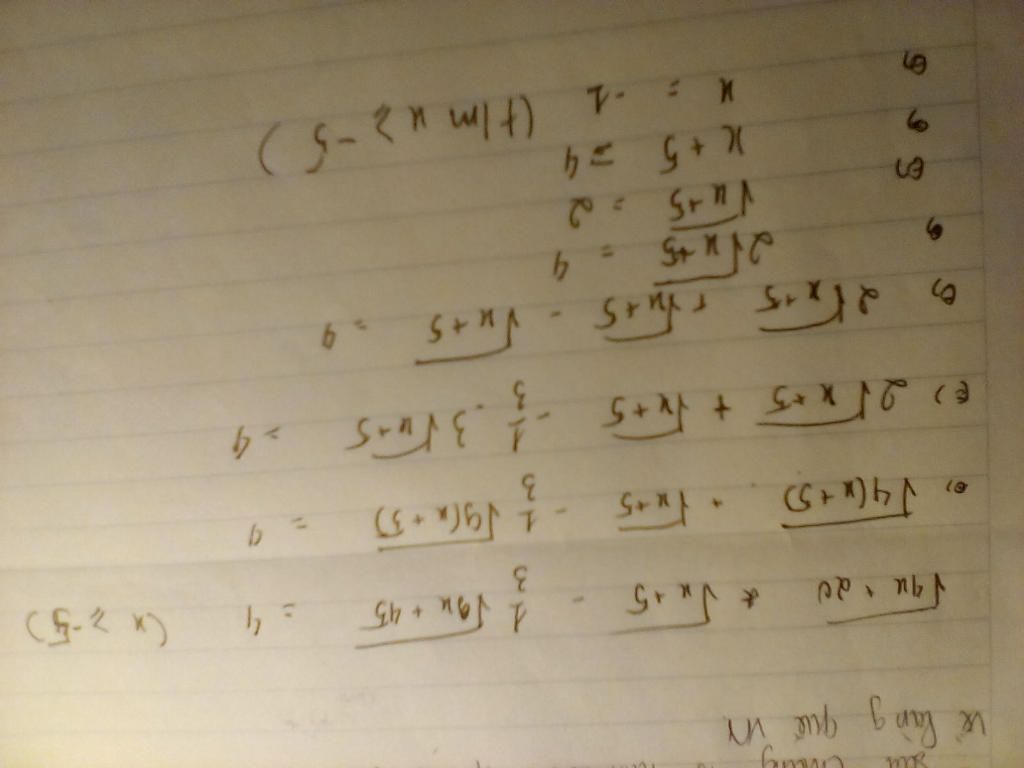 về làng quê VN
√4x + 20 + √x+5 - 1/3 √9x + 45 = 4 (x ≥ -5)
⇔ √4(x+5) + √x+5 - 1/3 √9(x+5) = 4
⇔ 2√x+5 + √x+5 - 1/3 . 3√x+5 = 4
⇔ 2√x+5 + √x+5 - √x+5 = 4
⇔ 2√x+5 = 4
⇔ √x+5 = 2
⇔ x + 5 = 4
⇔ x = -1 (t/m x ≥ -5)